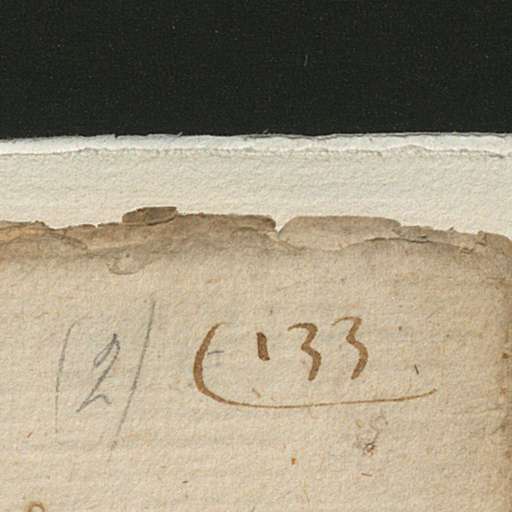 (2) (133